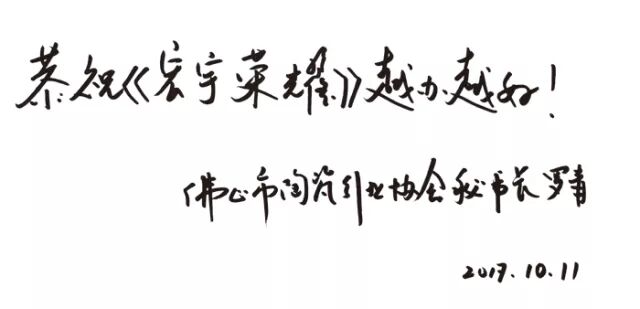 恭祝《宏宇荣耀》越办越好！
佛山市陶瓷行业协会秘书长 罗青
2017.10.11